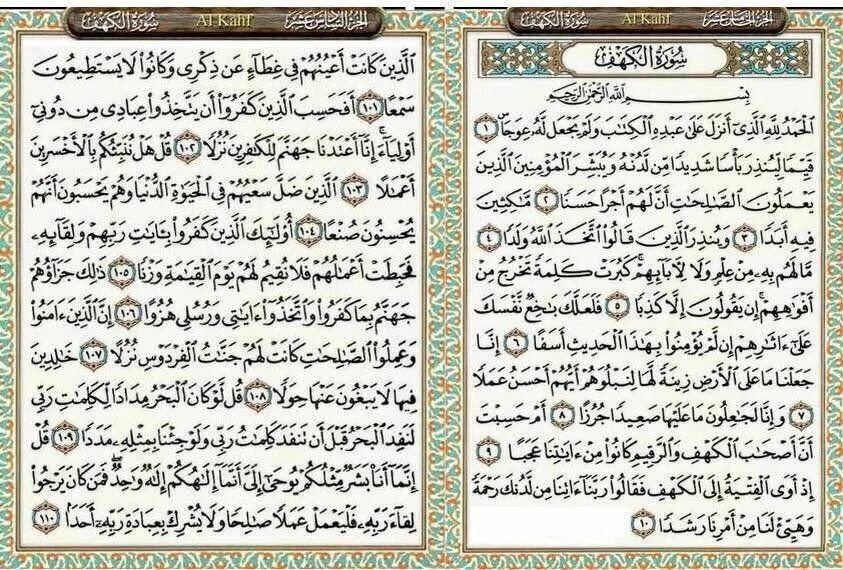 الجزء الخامس عشر Al Kahf سورة الكهف
سُورَةُ الكَهْفِ
بِسْمِ اللَّهِ الرَّحْمَٰنِ الرَّحِيمِ
الْحَمْدُ لِلَّهِ الَّذِي أَنزَلَ عَلَىٰ عَبْدِهِ الْكِتَابَ وَلَمْ يَجْعَل لَّهُ عِوَجًا ۜ ١
قَيِّمًا لِّيُنذِرَ بَأْسًا شَدِيدًا مِّن لَّدُنْهُ وَيُبَشِّرَ الْمُؤْمِنِينَ الَّذِينَ
يَعْمَلُونَ الصَّالِحَاتِ أَنَّ لَهُمْ أَجْرًا حَسَنًا ٢ مَّاكِثِينَ
فِيهِ أَبَدًا ٣ وَيُنذِرَ الَّذِينَ قَالُوا اتَّخَذَ اللَّهُ وَلَدًا ٤
مَّا لَهُم بِهِ مِنْ عِلْمٍ وَلَا لِآبَائِهِمْ ۚ كَبُرَتْ كَلِمَةً تَخْرُجُ مِنْ
أَفْوَاهِهِمْ ۚ إِن يَقُولُونَ إِلَّا كَذِبًا ٥ فَلَعَلَّكَ بَاخِعٌ نَّفْسَكَ
عَلَىٰ آثَارِهِمْ إِن لَّمْ يُؤْمِنُوا بِهَٰذَا الْحَدِيثِ أَسَفًا ٦ إِنَّا
جَعَلْنَا مَا عَلَى الْأَرْضِ زِينَةً لَّهَا لِنَبْلُوَهُمْ أَيُّهُمْ أَحْسَنُ عَمَلًا
٧ وَإِنَّا لَجَاعِلُونَ مَا عَلَيْهَا صَعِيدًا جُرُزًا ٨ أَمْ حَسِبْتَ
أَنَّ أَصْحَابَ الْكَهْفِ وَالرَّقِيمِ كَانُوا مِنْ آيَاتِنَا عَجَبًا ٩
إِذْ أَوَى الْفِتْيَةُ إِلَى الْكَهْفِ فَقَالُوا رَبَّنَا آتِنَا مِن لَّدُنكَ رَحْمَةً
وَهَيِّئْ لَنَا مِنْ أَمْرِنَا رَشَدًا ١٠
الجزء السادس عشر Al Kahf سورة الكهف
الَّذِينَ كَانَتْ أَعْيُنُهُمْ فِي غِطَاءٍ عَن ذِكْرِي وَكَانُوا لَا يَسْتَطِيعُونَ
سَمْعًا ١٠١ أَفَحَسِبَ الَّذِينَ كَفَرُوا أَن يَتَّخِذُوا عِبَادِي مِن دُونِي
أَوْلِيَاءَ ۚ إِنَّا أَعْتَدْنَا جَهَنَّمَ لِلْكَافِرِينَ نُزُلًا ١٠٢ قُلْ هَلْ نُنَبِّئُكُم بِالْأَخْسَرِينَ
أَعْمَالًا ١٠٣ الَّذِينَ ضَلَّ سَعْيُهُمْ فِي الْحَيَاةِ الدُّنْيَا وَهُمْ يَحْسَبُونَ أَنَّهُمْ
يُحْسِنُونَ صُنْعًا ١٠٤ أُولَٰئِكَ الَّذِينَ كَفَرُوا بِآيَاتِ رَبِّهِمْ وَلِقَائِهِ
فَحَبِطَتْ أَعْمَالُهُمْ فَلَا نُقِيمُ لَهُمْ يَوْمَ الْقِيَامَةِ وَزْنًا ١٠٥ ذَٰلِكَ جَزَاؤُهُمْ
جَهَنَّمُ بِمَا كَفَرُوا وَاتَّخَذُوا آيَاتِي وَرُسُلِي هُزُوًا ١٠٦ إِنَّ الَّذِينَ آمَنُوا
وَعَمِلُوا الصَّالِحَاتِ كَانَتْ لَهُمْ جَنَّاتُ الْفِرْدَوْسِ نُزُلًا ١٠٧ خَالِدِينَ
فِيهَا لَا يَبْغُونَ عَنْهَا حِوَلًا ١٠٨ قُل لَّوْ كَانَ الْبَحْرُ مِدَادًا لِّكَلِمَاتِ رَبِّي
لَنَفِدَ الْبَحْرُ قَبْلَ أَن تَنفَدَ كَلِمَاتُ رَبِّي وَلَوْ جِئْنَا بِمِثْلِهِ مَدَدًا ١٠٩ قُلْ
إِنَّمَا أَنَا بَشَرٌ مِّثْلُكُمْ يُوحَىٰ إِلَيَّ أَنَّمَا إِلَٰهُكُمْ إِلَٰهٌ وَاحِدٌ ۖ فَمَن كَانَ يَرْجُوا
لِقَاءَ رَبِّهِ فَلْيَعْمَلْ عَمَلًا صَالِحًا وَلَا يُشْرِكْ بِعِبَادَةِ رَبِّهِ أَحَدًا ١١٠